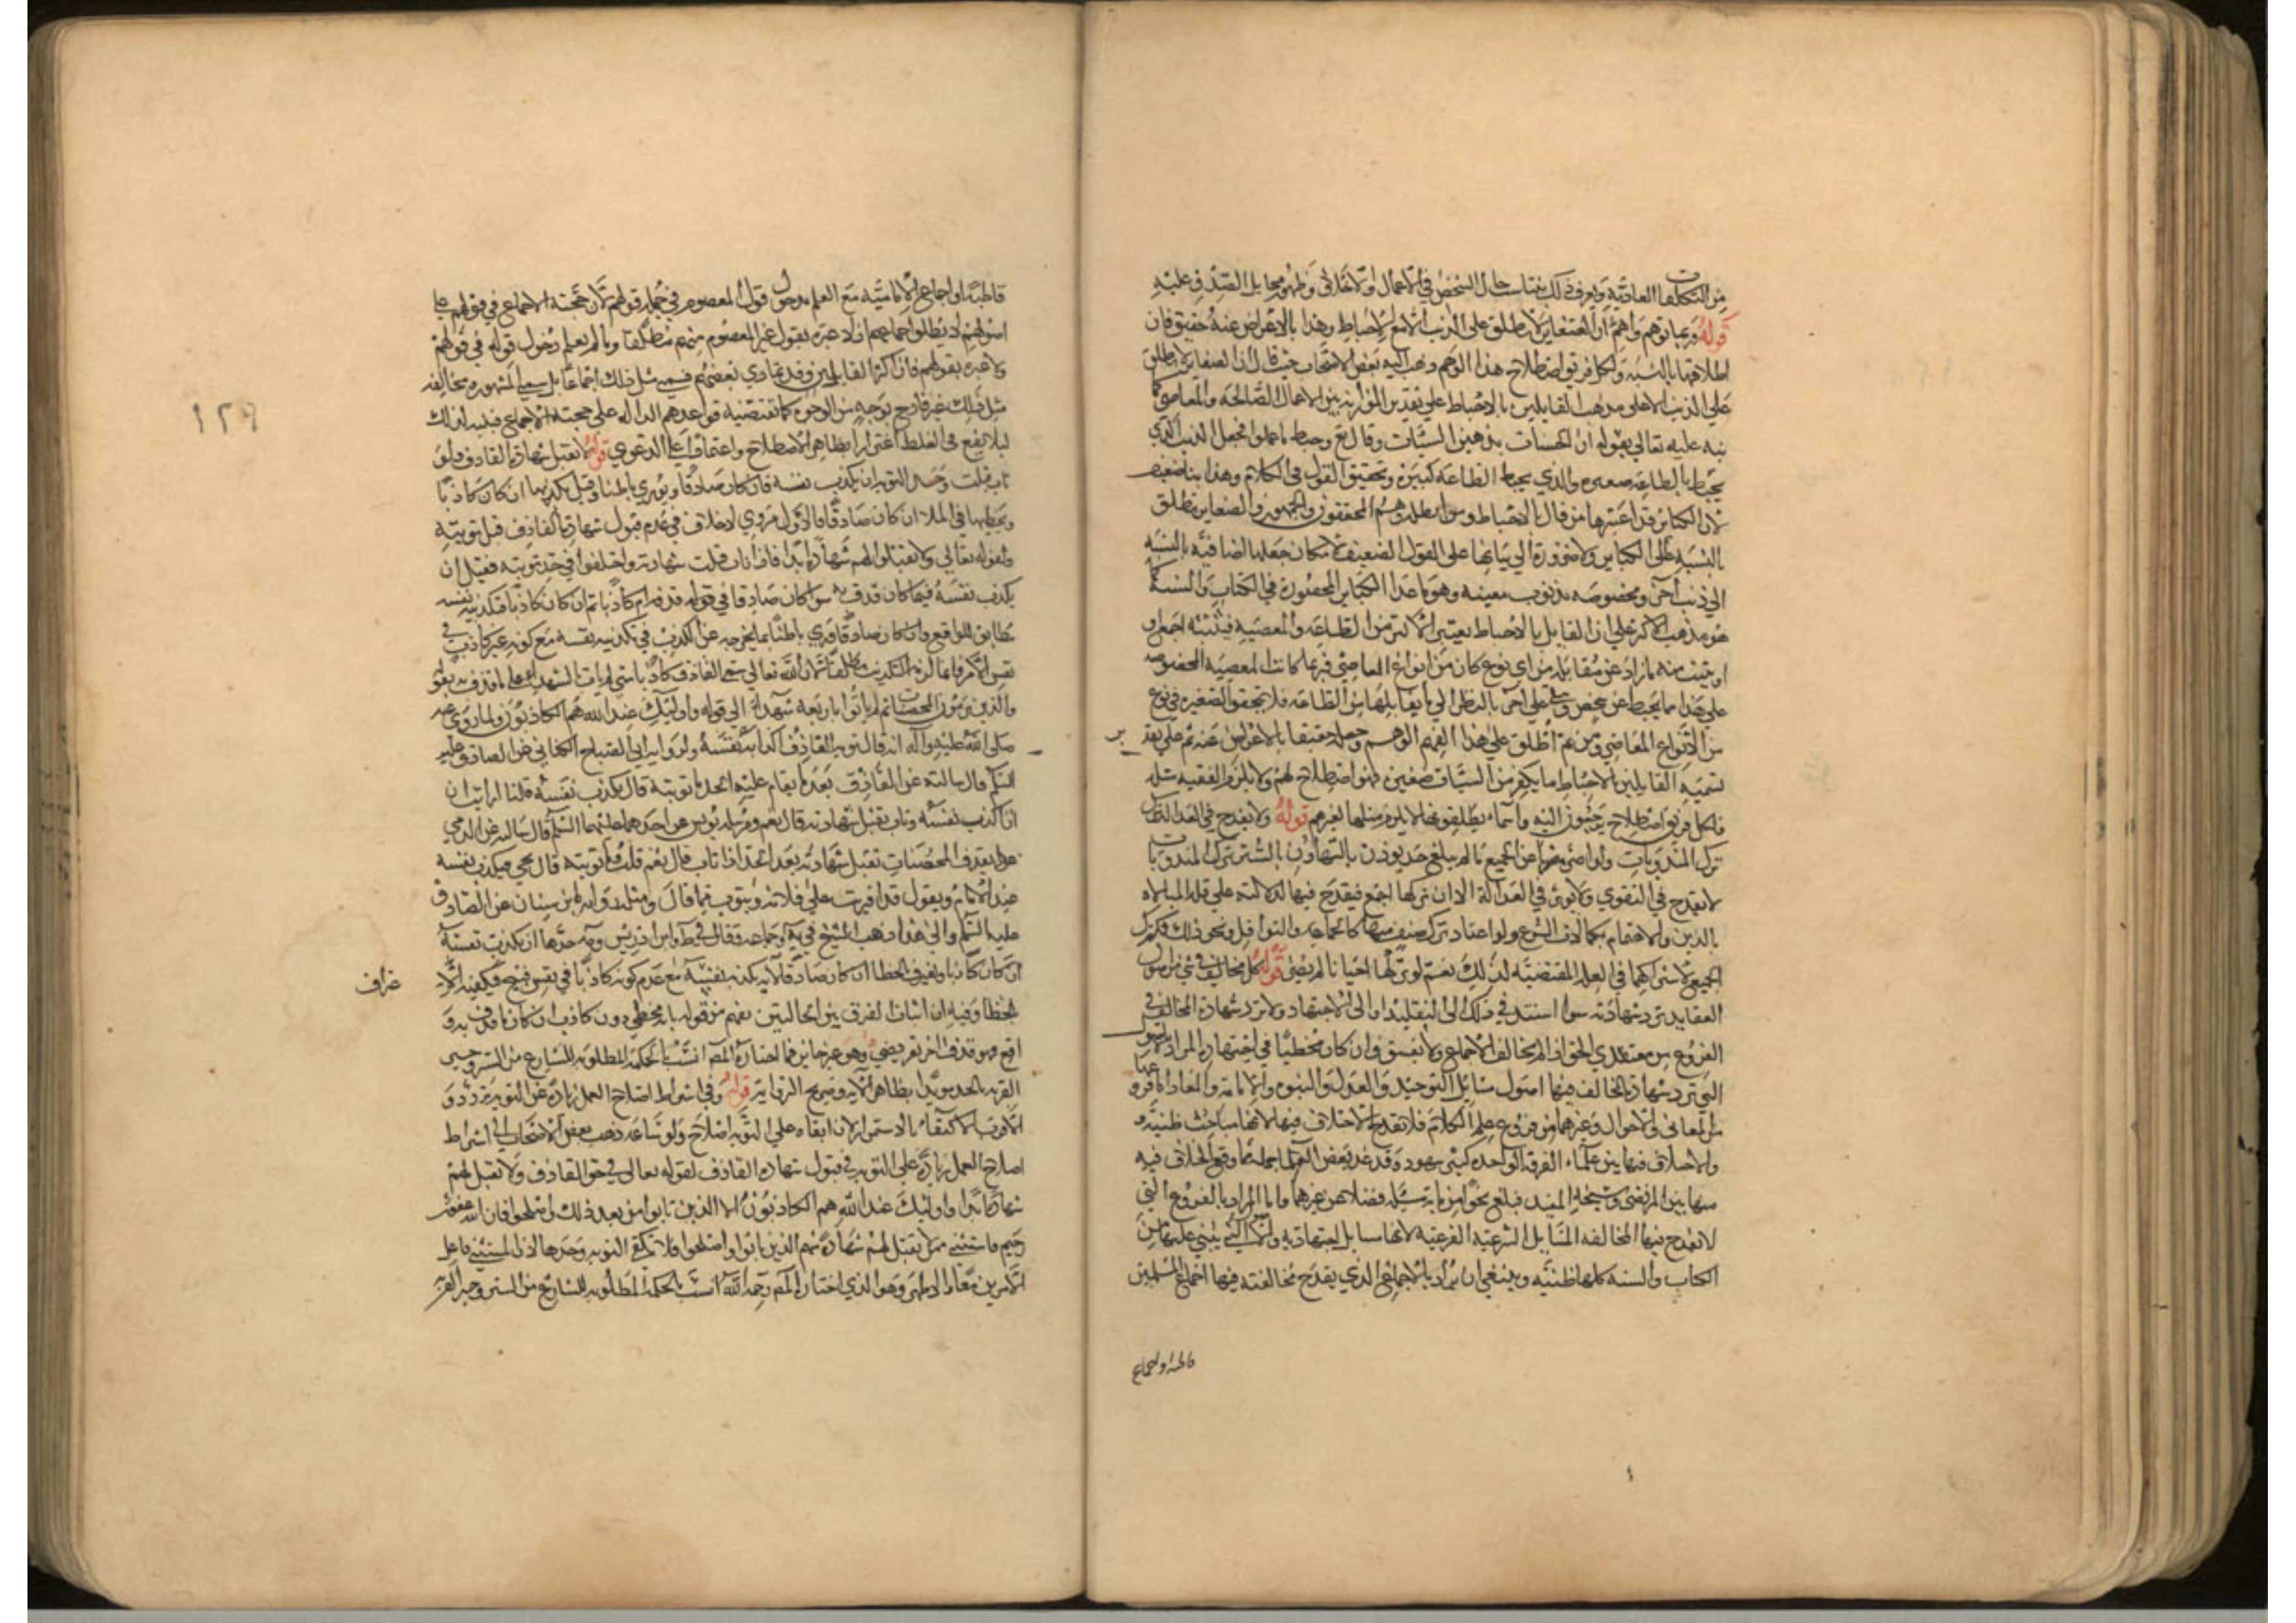 من التكلفات العادية ويعرف ذلك بتناسب حال الشخص في الأعمال والأخلاق وظهور مخايل الصدق عليه
قوله فربما توهم واهم أن الصغائر لا تطلق على الذنب إلا مع الاحباط وهذا بالاعراض عنه حقيق فان
اطلاقها بالنسبة ولكل فريق اصطلاح هذا الوهم ذهب اليه بعض الأصحاب حيث قال ان الصغاير لا تطلق
على الذنب الا على مذهب القايلين بالاحباط على تقدير الموازنة بين الاعمال الصالحة والمعاصي كما
نبه عليه تعالى بقوله ان الحسنات يذهبن السيئات وقال تع وحبط ما عملوا فجعل الذنب الذي
يحبط بالطاعة صغيره والذي يحبط الطاعة كبيرة وتحقيق القول في الكلام وهذا بناء ضعيف
لان الكبائر قد اعتبرها من قال بالاحباط ومن ابطله وهم المحققون والجمهور والصغاير تطلق
بالنسبة الى الكباير ولا ضرورة الى بنائها على القول الضعيف لامكان جعلها اضافية بالنسبة
الى ذنب آخر ومخصوصه بذنوب معينه وهو ما عدا الكباير المحصورة في الكتاب والسنة كما
هو مذهب الاكثر على ان القايل بالاحباط يعتبر الاكثر من الطاعة والمعصية فيثبته اجمع او
او يثبت منه ما زاد عن مقابله من اي نوع كان من انواع المعاصي فربما كانت المعصية المخصوصه
على هذا مما يحبط عن شخص وعلى آخر بالنظر الى ما يقابلها من الطاعة فلا يتحقق الصغيره في نوع
من الأنواع المعاصي ومن ثم اطلق على هذا الفهم الوهم وجعله حقيقا بالاعراض عنه ثم على تقد
ير
تسميه القايلين بالاحباط ما يكفر من السيئات صغيره فهو اصطلاح لهم ولا يلزم الفقيه مثله
فلكل فريق اصطلاح يرجعون اليه واسماء يطلقونها لا يلزم مثلها لغيرهم قوله ولا يقدح في العدالة
ترك المندوبات ولو اصر عن الجميع ما لم يبلغ حد يوذن بالتهاون بالسنن ترك المندوبات
لا يقدح في التقوى ولا يوثر في العدالة الا ان يتركها اجمع فيقدح فيها لدلالته على قلة المبالاه
بالدين والاهتمام بكمالات الشرع ولو اعتاد ترك صنف منها كالجماعة والنوافل ونحو ذلك فكترك
الجميع لاشتراكهما في العلة المقتضية لذلك نعم لو تركها احيانا لم يضر قوله كل مخالف في شيء من اصول
العقايد ترد شهادته سواء استند في ذلك الى التقليد او الى الاجتهاد ولا ترد شهادة المخالف في
الفروع من معتقدي الحق اذا لم يخالف الاجماع ولا يفسق وان كان مخطيا في اجتهاده المراد بالاصول
التي ترد شهادة المخالف فيها اصول مسايل التوحيد والعدل والنبوة والامامة والمعاد اما فروعها
من المعاني والاحوال وغيرهما من فروع علم الكلام فلا يقدح الاختلاف فيها لانها مباحث ظنية
والاختلاف فيها بين علماء الفرقة الواحدة كثير مشهود وقد عد بعض العلماء جملة مما وقع الخلاف فيه
منها بين المرتضى وشيخه المفيد فبلغ نحوا من مايه مسئله فضلا عن غيرهما واما المراد بالفروع التي
لا يقدح فيها المخالفه المسايل الشرعية الفرعية لانها مسايل اجتهادية والادلة التي يبنى عليها من
الكتاب والسنة كلها ظنية وينبغي ان يراد بالاجماع الذي يقدح مخالفته فيها اجماع المسلمين
قاطبة او اجماع
١٢٩
قاطبة او اجماع الامامية مع العلم بدخول قول المعصوم في جملة قولهم لان حجية الاجماع في قولهم على
اصولهم لا مطلق اجماعهم اذ لا عبرة بقول غير المعصوم منهم مطلقا وما لم يعلم دخول قوله في قولهم
ولا عبرة بقولهم فان كثر القايل به وقد تمادى بعضهم فسمى مثل ذلك اجماعا بل سمى المشهور ومخالفة
مثل ذلك غير قادح بوجه من الوجوه كما تقتضيه قواعدهم الدالة على حجية الاجماع فتنبه لذلك
ليلا يقع في الغلط اغترارا بظاهر الاصطلاح واعتمادا على الدعوى قوله لا تقبل شهادة القاذف ولو
تاب قبلت وحد التوبة ان يكذب نفسه فان كان صادقا ويوري باطنا وقيل يكذبها ان كان كاذبا
ويخطيها في الملا ان كان صادقا والاول مروي لا خلاف في عدم قبول شهادة القاذف قبل توبته
ولقوله تعالى ولا تقبلوا لهم شهادة ابدا فاذا تاب قبلت شهادته واختلفوا في حد توبته فقيل ان
يكذب نفسه فيما كان قذف به سواء كان صادقا في قوله قذفه ام كاذبا ثم ان كان كاذبا فتكذيبه نفسه
مطابق للواقع وان كان صادقا ورى باطنا بما يخرجه عن الكذب في تكذيبه نفسه مع كونه غير كاذب في
نفس الامر وانما لزمه التكذيب مطلقا لان الله تعالى سمى القاذف كاذبا متى لم يات بالشهداء على ما قذف به بقوله
والذين يرمون المحصنات ثم لم ياتوا باربعة شهداء الى قوله واولئك عند الله هم الكاذبون ولما روي عنه
صلى الله عليه وآله انه قال توبة القاذف اكذابه نفسه ولرواية ابي الصباح الكناني عن الصادق عليه
السلم قال سالته عن القاذف بعد ما يقام عليه الحد ما توبته قال يكذب نفسه قلت ارايت ان
ان اكذب نفسه وتاب تقبل شهادته قال نعم ومرسلة يونس عن احدهما عليهما السلم قال سالته عن الذي
يقذف المحصنات تقبل شهادته بعد الحد اذا تاب قال نعم قلت وما توبته قال يجي فيكذب نفسه
عند الامام ويقول قد افتريت على فلانة ويتوب مما قال ومثله رواية ابن سنان عن الصادق
عليه السلم والى هذا ذهب الشيخ في يه وجماعه وقال في ط وابن ادريس وجه حدها ان يكذب نفسه
ان كان كاذبا ويعترف بالخطا ان كان صادقا لانه يكذب نفسه مع عدم كونه كاذبا في نفسه قبيح فيكفيه الا
عتراف
بالخطا وفيه ان اثبات الفرق بين الحالتين يفهم من قوله بانه مخطي دون كاذب ان كان ما قذف به و
اقع وهو قذف اخر تعريضي وهو غير جايز فما اختاره المص انسب بالحكمة المطلوبة للشارع من الستر وحسن
القرنه بالحد مويدا بظاهر الايه وصريح الرواية قوله وفي اشتراط اصلاح العمل زيادة عن التوبة تردد و
الاقرب الاكتفاء بالاستمرار لان ابقاه على التوبة اصلاح ولو ساعة ذهب بعض الاصحاب الى اشتراط
اصلاح العمل زيادة على التوبة في قبول شهادة القاذف لقوله تعالى في حق القاذف ولا تقبلوا لهم
شهادة ابدا واولئك عند الله هم الكاذبون الا الذين تابوا من بعد ذلك واصلحوا فان الله غفور
رحيم فاستثنى ممن لا يقبل لهم شهادة منهم الذين تابوا واصلحوا فلا تكفي التوبة وحدها اذ المستثنى فاعل
الامرين معا والاظهر وهو الذي اختاره المص رحمه الله انسب بالحكمة المطلوبة للشارع من الستر وجبر العرض